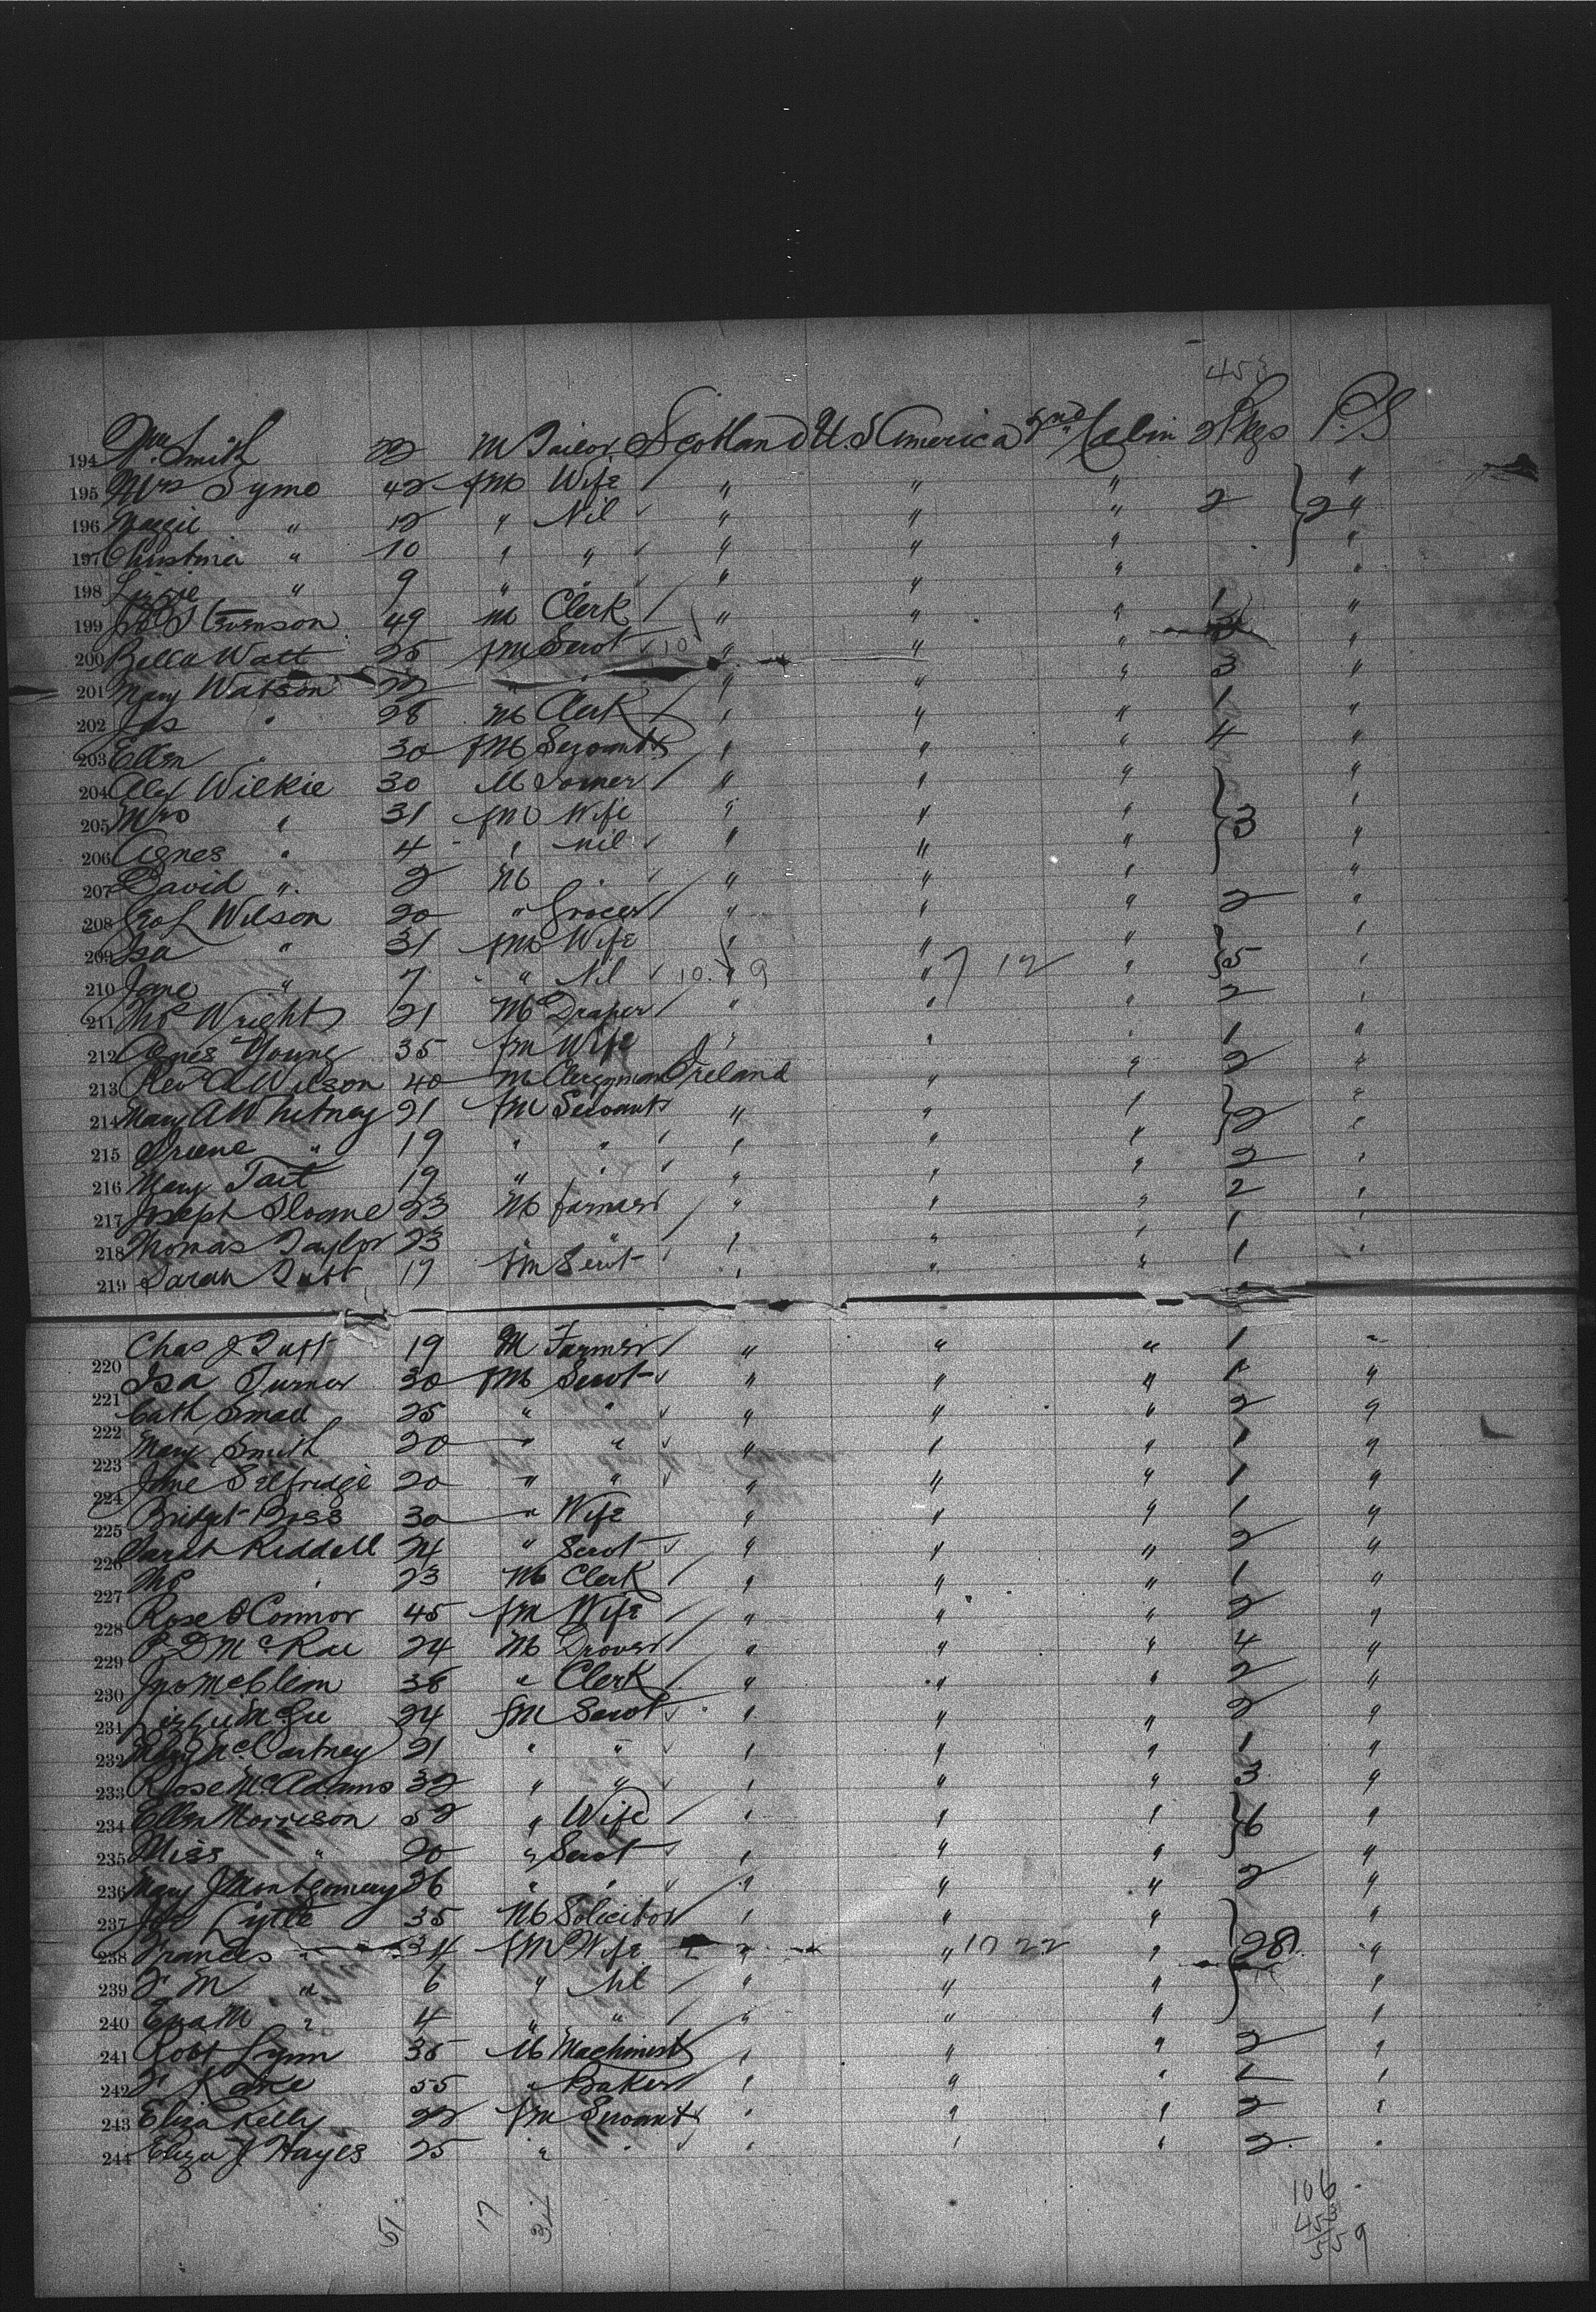 453
194 Wm Smith 22 M Tailor Scotland U.S America 2nd Cabin 2 Pkgs P.S
195 Mrs Syme 42 fM Wife / " " " "
196 Maggie " 12 " Nil " " " 2 } 2 "
197 Christina " 10 " " " " " "
198 Lizzie " 9 " " " " " "
199 Stevenson 49 M Clerk / " " " 1 "
200 Bella Watt 25 fM Servt 10 " " " "
201 Mary Watson 22 " " " " " 3 "
202 Jas " 28 M Clerk / " " " 1 "
203 Ellen " 30 fM Servant " " " 4 "
204 Alex Wilkie 30 M Joiner / " " " "
205 Mrs " 31 fM Wife " " " } 3 "
206 Agnes " 4 " nil " " " "
207 David " 2 M " " " " "
208 Geo L Wilson 20 " Grocer / " " " 2 "
209 Isa " 31 fM Wife " " " } 5 "
210 Jane " 7 " Nil 10 " 9 " 7 12 " "
211 Thos Wright 21 M Draper / " " " 2 "
212 Agnes Young 35 fM Wife " " " 1 "
213 Rev A Wilson 40 M Clergyman Ireland " " 2 "
214 Mary A Whitney 21 fM Servant " " " } 2 "
215 Irene " 19 " " " " " "
216 Mary Tait 19 " " " " " 2 "
217 Joseph Sloane 23 M farmer / " " " 2 "
218 Thomas Taylor 23 " " / " " " 1 "
219 Sarah Tutt 17 fM Servt " " " 1 "
220 Chas J Tuft 19 M Farmer / " " " 1 "
221 Isa Turner 30 fM Servt " " " 1 "
222 Cath Smail 25 " " " " " 2 "
223 Mary Smith 20 " " " " " 1 "
224 Jane Selfridge 20 " " " " " 1 "
225 Bridget Ross 30 " Wife " " " 1 "
226 Sarah Riddell 24 " Servt " " " 2 "
227 Thos " 23 M Clerk / " " " 1 "
228 Rose O'Connor 45 fM Wife / " " " 2 "
229 McRae 24 M Drover / " " " 4 "
230 Jno McClem 38 " Clerk / " " " 2 "
231 Lizzie McGee 24 fM Servt " " " 2 "
232 Mary McCartney 21 " " " " " 1 "
233 Rose McAdams 32 " " " " " 3 "
234 Ellen Morrison 52 " Wife / " " " } 6 "
235 Miss " 20 " Servt " " " "
236 Mary J Montgomery 26 " " " " " 2 "
237 Lytle 35 M Solicitor / " " " "
238 Frances " 34 fM Wife " " 10 22 " } 28 "
239 M " 6 " Nil " " " "
240 Eva M " 4 " " / " " " "
241 Robt Lynn 35 M Machinist " " " 2 "
242 Kane 55 " Baker / " " " 1 "
243 Eliza Kelly 22 fM Servant " " " 2 "
244 Eliza J Hayes 25 " " " " " 2 "
51 17 34 106
453
559